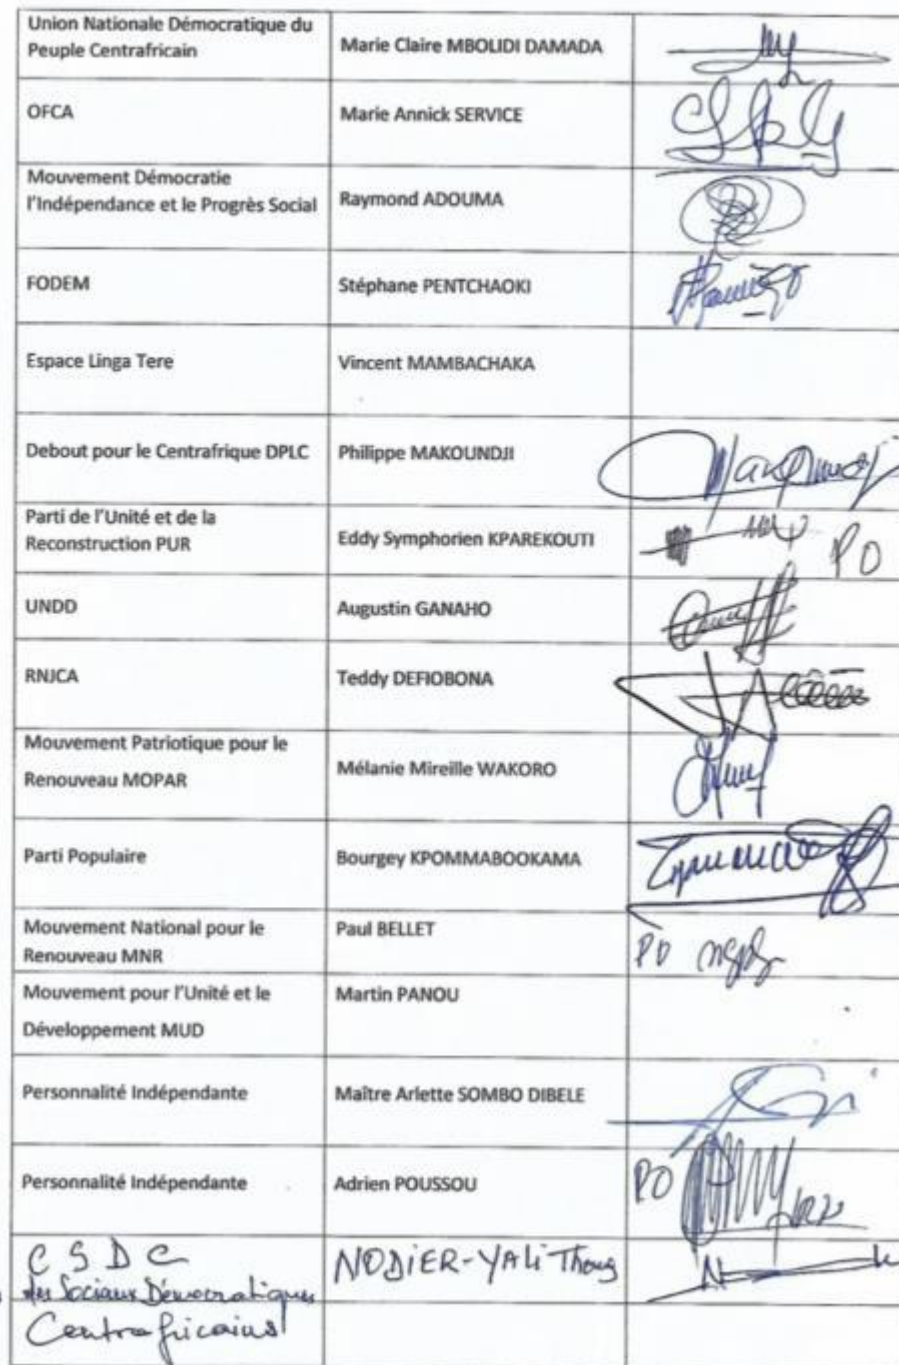 Union Nationale Démocratique du
Peuple Centrafricain
Marie Claire MBOLIDI DAMADA
OFCA
Marie Annick SERVICE
Mouvement Démocratie
l'Indépendance et le Progrès Social
Raymond ADOUMA
FODEM
Stéphane PENTCHAOKI
Espace Linga Tere
Vincent MAMBACHAKA
Debout pour le Centrafrique DPLC
Philippe MAKOUNDJI
Parti de l'Unité et de la
Reconstruction PUR
Eddy Symphorien KPAREKOUTI
PO
UNDD
Augustin GANAHO
RNJCA
Teddy DEFIOBONA
Mouvement Patriotique pour le
Renouveau MOPAR
Mélanie Mireille WAKORO
Parti Populaire
Bourgey KPOMMABOOKAMA
Mouvement National pour le
Renouveau MNR
Paul BELLET
PO
Mouvement pour l'Unité et le
Développement MUD
Martin PANOU
Personnalité Indépendante
Maître Arlette SOMBO DIBELE
Personnalité Indépendante
Adrien POUSSOU
PO
C S D C
des Sociaux Démocratiques
Centrafricains
NODIER-YALI Thong